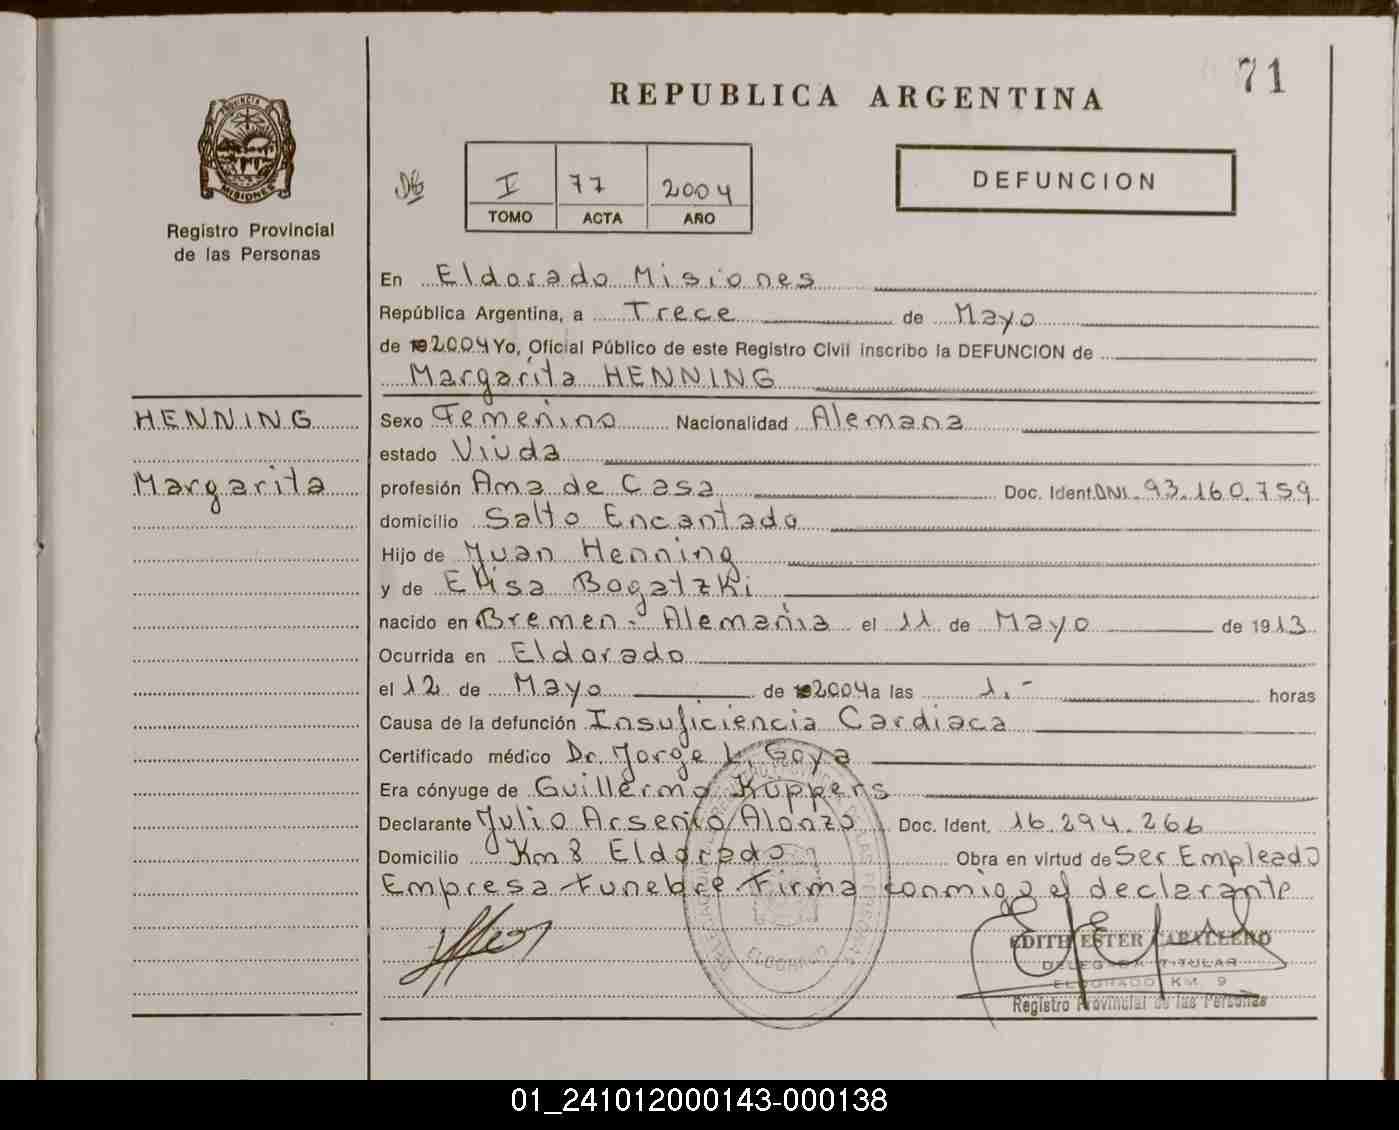 71
REPUBLICA ARGENTINA
PROVINCIA DE
MISIONES
Registro Provincial
de las Personas
I 77 2004
TOMO ACTA AÑO
DEFUNCION
En Eldorado Misiones
República Argentina, a Trece de Mayo
de 2004 Yo, Oficial Público de este Registro Civil inscribo la DEFUNCION de
Margarita HENNING
HENNING
Margarita
Sexo Femenino Nacionalidad Alemana
estado Viuda
profesión Ama de Casa Doc. Ident. DNI. 93.160.759
domicilio Salto Encantado
Hijo de Juan Henning
y de Elisa Bogatzki
nacido en Bremen - Alemania el 11 de Mayo de 1913
Ocurrida en Eldorado
el 12 de Mayo de 2004 a las 1.- horas
Causa de la defunción Insuficiencia Cardiaca
Certificado médico Dr. Jorge L. Goya
Era cónyuge de Guillermo Kuppers
Declarante Julio Arsenio Alonzo Doc. Ident. 16.294.266
Domicilio Km 8 Eldorado Obra en virtud de Ser Empleado
Empresa Funebre Firma conmigo el declarante
ELDORADO
EDITH ESTER CABALLERO
DELEGADA TITULAR
ELDORADO KM. 9
Registro Provincial de las Personas
01_241012000143-000138